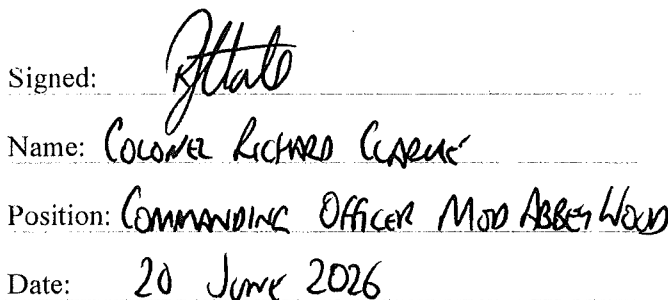 Signed:
Name: COLONEL RICHARD CLARKE
Position: COMMANDING OFFICER MOD ABBEY WOOD
Date: 20 JUNE 2026